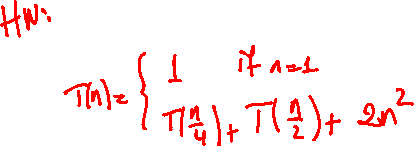 HW:
T(n) = { 1 if n=1
T(n/4) + T(n/2) + 2n²